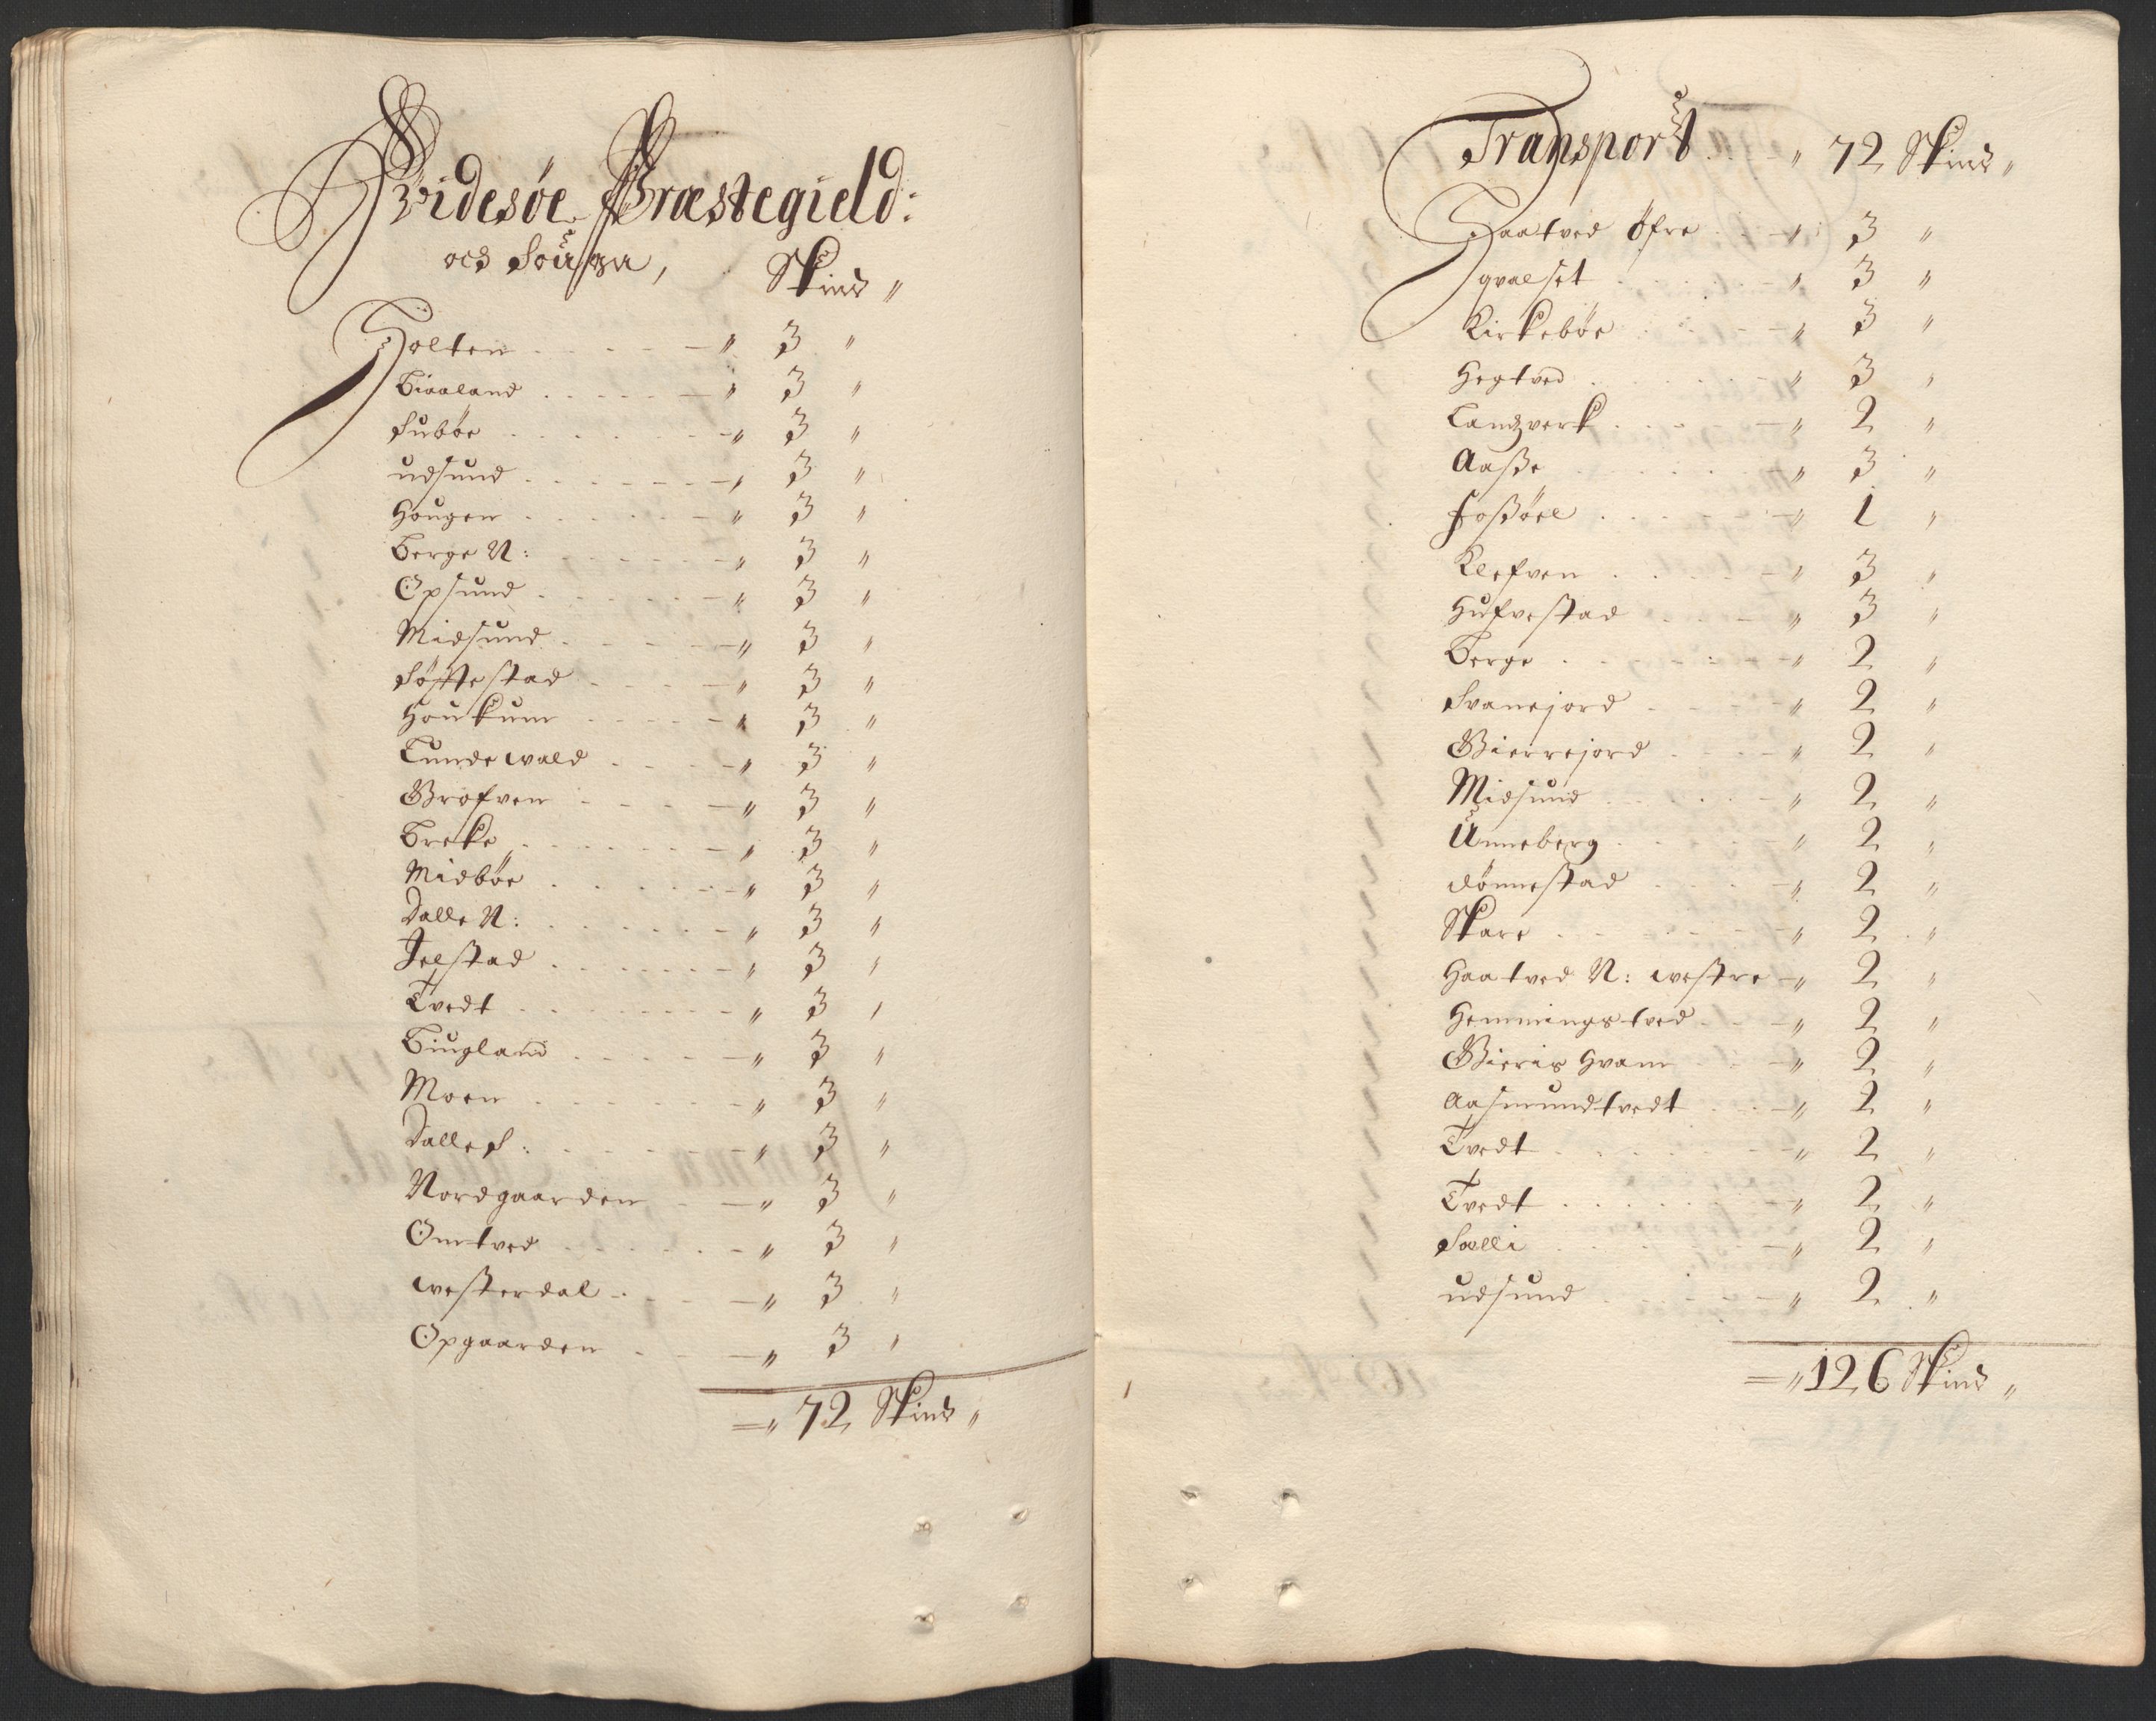 Hvidesöe Præstegield:
och Sougn, Skind "
Holten . . . . . — " 3 "
Biaaland . . . . . — " 3 "
Subøe . . . . . . . — " 3 "
udsund . . . . . . . — " 3 "
Hougen . . . . . . — " 3 "
Berge N: . . . . . — " 3 "
Opsund . . . . . . — " 3 "
Midsund . . . . . — " 3 "
Søftestad . . . . — " 3 "
Houkum . . . . . — " 3 "
Lundewald . . . . — " 3 "
Grofven . . . . — " 3 "
Breke . . . . . . . — " 3 "
Midböe . . . . . . — " 3 "
Dalle N: . . . . . . — " 3 "
Jelstad . . . . . . . — " 3 "
Tvedt . . . . . . . . — " 3 "
Biugland . . . . . — " 3 "
Moen . . . . . . . — " 3 "
Dalle S: . . . . . . — " 3 "
Nordgaarden . — " 3 "
Omtved . . . . . . — " 3 "
westerdal . . . . — " 3 "
Opgaarden . . . — " 3 "
= " 72 Skind "
Transport . . — " 72 Skind "
Haatved öfre . . — " 3 "
Hqvalset . . . . . . " 3 "
Kirkebøe . . . . — " 3 "
Hegtved . . . . . — " 3 "
Landzverk . . . . — " 2 "
Aaße . . . . . . . " 3 "
Foßöel . . . . . . — " 1 "
Klefven . . . . . — " 3 "
Hufvestad . . . — " 3 "
Berge . . . . . . . — " 2 "
Svanejord . . . . — " 2 "
Gierrejord . . . . — " 2 "
Midsund . . . . . — " 2 "
Unneberg . . . . . " 2 "
dönnestad . . . . — " 2 "
Skare . . . . . . . — " 2 "
Haatved N: westre — " 2 "
Hemmingstved . . — " 2 "
Gieris Hvam . . — " 2 "
Aasmundtvedt . . — " 2 "
Tvedt . . . . . . . — " 2 "
Tvedt . . . . . . . — " 2 "
Sælli . . . . . . . — " 2 "
udsund . . . . . — " 2 "
= " 126 Skind "